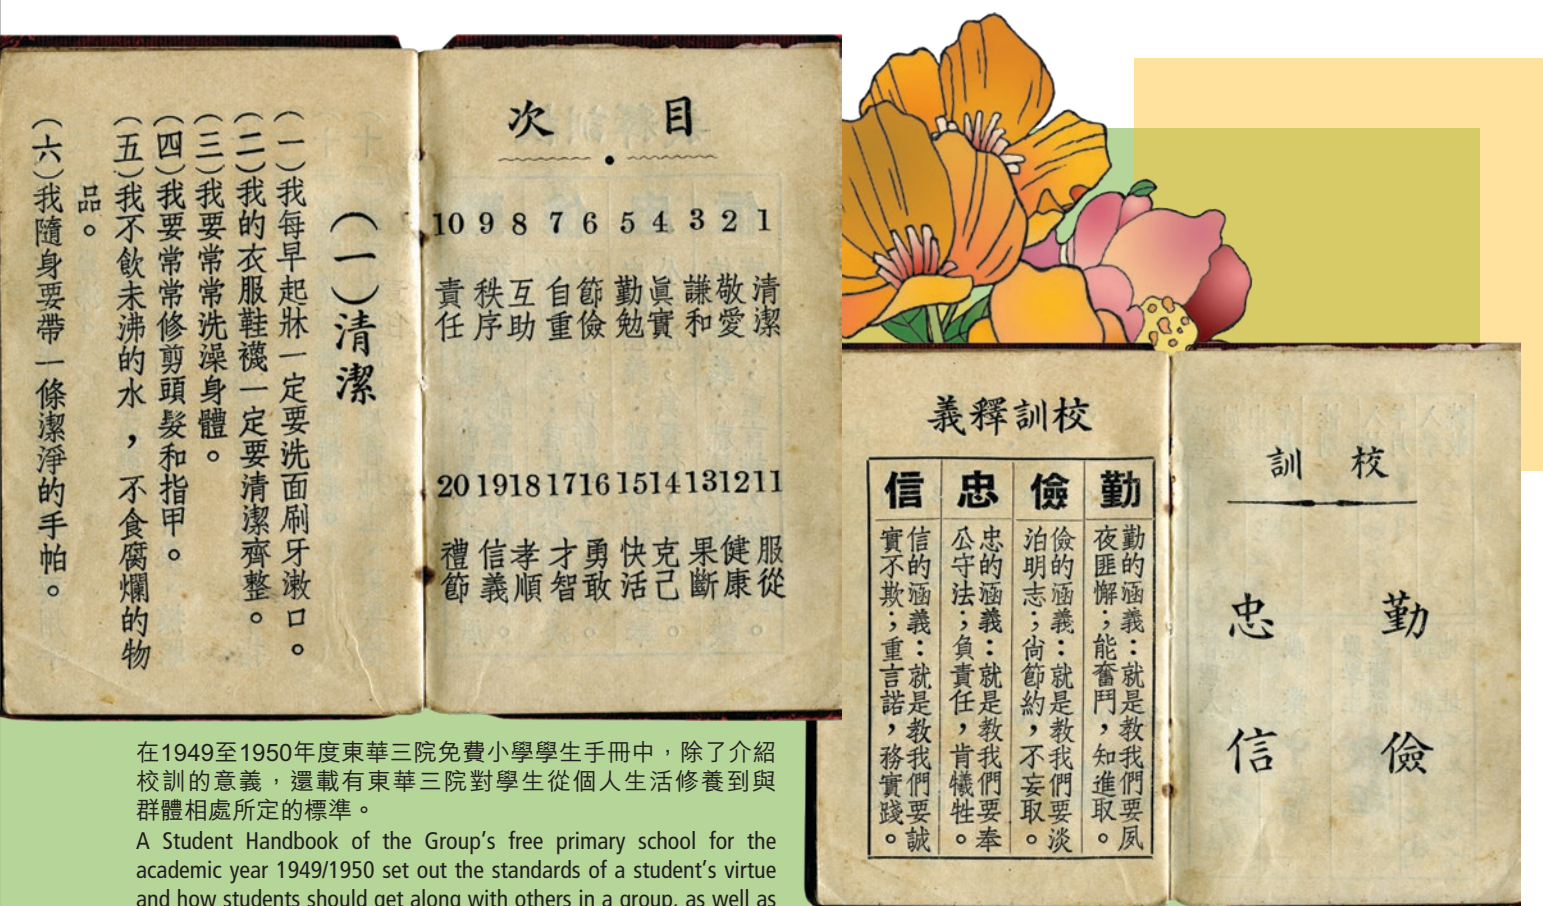 目次
1 清潔
2 敬愛
3 謙和
4 眞實
5 勤勉
6 節儉
7 自重
8 互助
9 秩序
10 責任
11 服從
12 健康
13 果斷
14 克己
15 快活
16 勇敢
17 才智
18 孝順
19 信義
20 禮節
(一)清潔
(一)我每早起牀一定要洗面刷牙漱口。
(二)我的衣服鞋襪一定要清潔齊整。
(三)我要常常洗澡身體。
(四)我要常常修剪頭髮和指甲。
(五)我不飲未沸的水，不食腐爛的物
品。
(六)我隨身要帶一條潔淨的手帕。
校訓
勤儉
忠信
校訓釋義
勤
勤的涵義：就是教我們要夙
夜匪懈；能奮鬥，知進取。
儉
儉的涵義：就是教我們要淡
泊明志；尚節約，不妄取。
忠
忠的涵義：就是教我們要奉
公守法；負責任，肯犧牲。
信
信的涵義：就是教我們要誠
實不欺；重言諾，務實踐。
在1949至1950年度東華三院免費小學學生手冊中，除了介紹
校訓的意義，還載有東華三院對學生從個人生活修養到與
群體相處所定的標準。
A Student Handbook of the Group's free primary school for the
academic year 1949/1950 set out the standards of a student's virtue
and how students should get along with others in a group, as well as